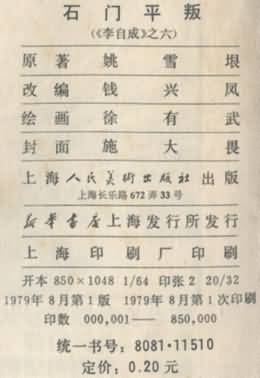 石门平叛
(《李自成》之六)
原著 姚雪垠
改编 钱兴凤
绘画 徐有武
封面 施大畏
上海人民美術出版社出版
上海长乐路672弄33号
新华書店上海发行所发行
上海印刷厂印刷
开本 850×1048 1/64 印张 2 20/32
1979年8月第1版 1979年8月第1次印刷
印数 000,001—— 850,000
统一书号：8081·11510
定价：0.20元